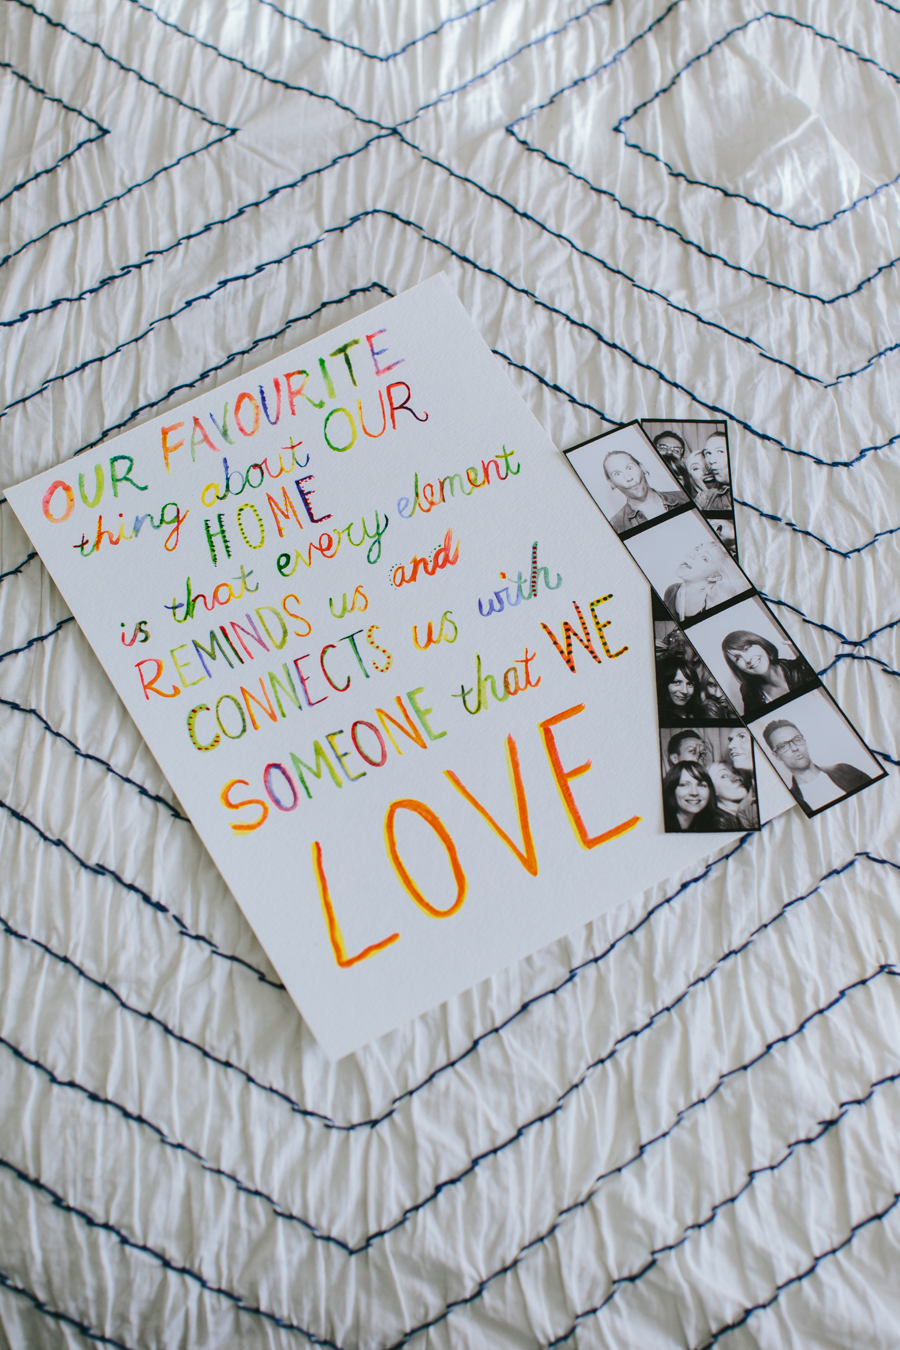 OUR FAVOURITE
thing about OUR
HOME
is that every element
REMINDS us and
CONNECTS us with
SOMEONE that WE
LOVE